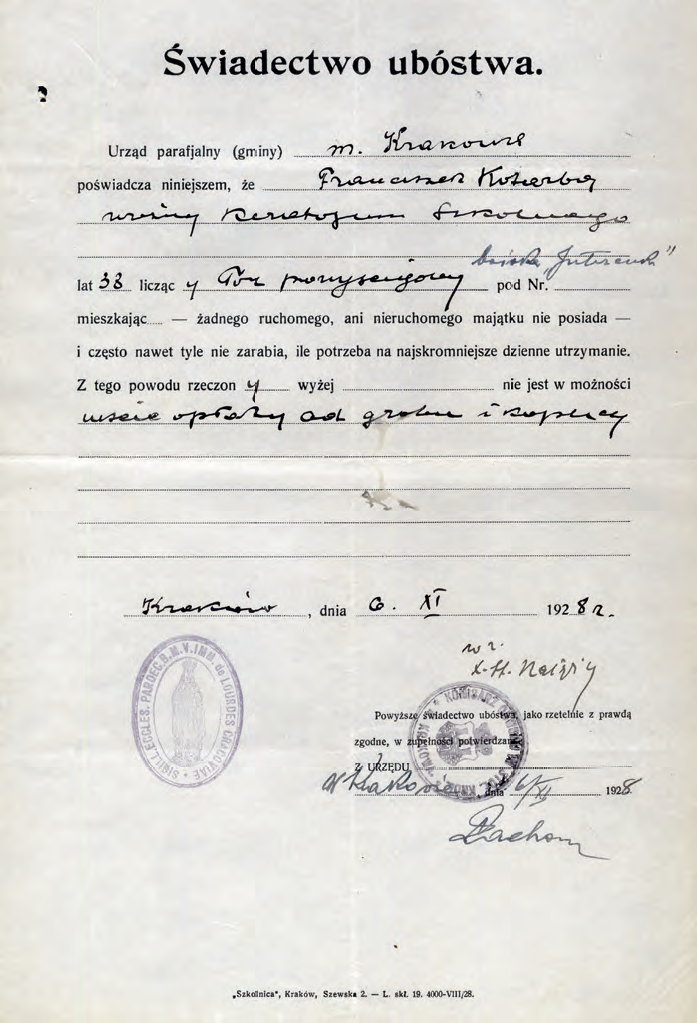 Świadectwo ubóstwa.
Urząd parafjalny (gminy) m. Krakowa
poświadcza niniejszem, że Franciszek
Szkolnego
boiska „Jutrzenka"
lat 33 licząc y pod Nr.
mieszkając — żadnego ruchomego, ani nieruchomego majątku nie posiada —
i często nawet tyle nie zarabia, ile potrzeba na najskromniejsze dzienne utrzymanie.
Z tego powodu rzeczon y wyżej nie jest w możności
opłaty od grobu i kaplicy
Kraków, dnia 6. XI 1928 r.
SIGILL. ECCLES. PAROEC. B. M. V. IMM. de LOURDES CRACOVIAE
w z.
Powyższe świadectwo ubóstwa, jako rzetelnie z prawdą
zgodne, w zupełności potwierdzam
Z URZĘDU
w Krakowie, dnia 6/XI 1928.
„Szkolnica", Kraków, Szewska 2. — L. skł. 19. 4000-VIII/28.